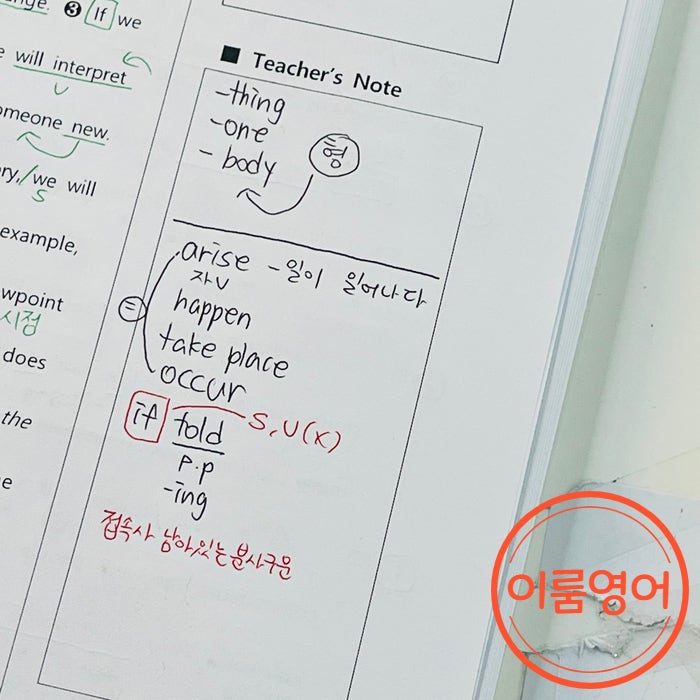 nge. ❸ If we
will interpret
omeone new.
ry, / we will
S
example,
wpoint
시점
does
the
e
■ Teacher's Note
-thing
-one
- body
형
arise - 일이 일어나다
자V
= happen
take place
occur
if told S, V(X)
P.P
-ing
접속사 남아있는 분사구문
이룸영어